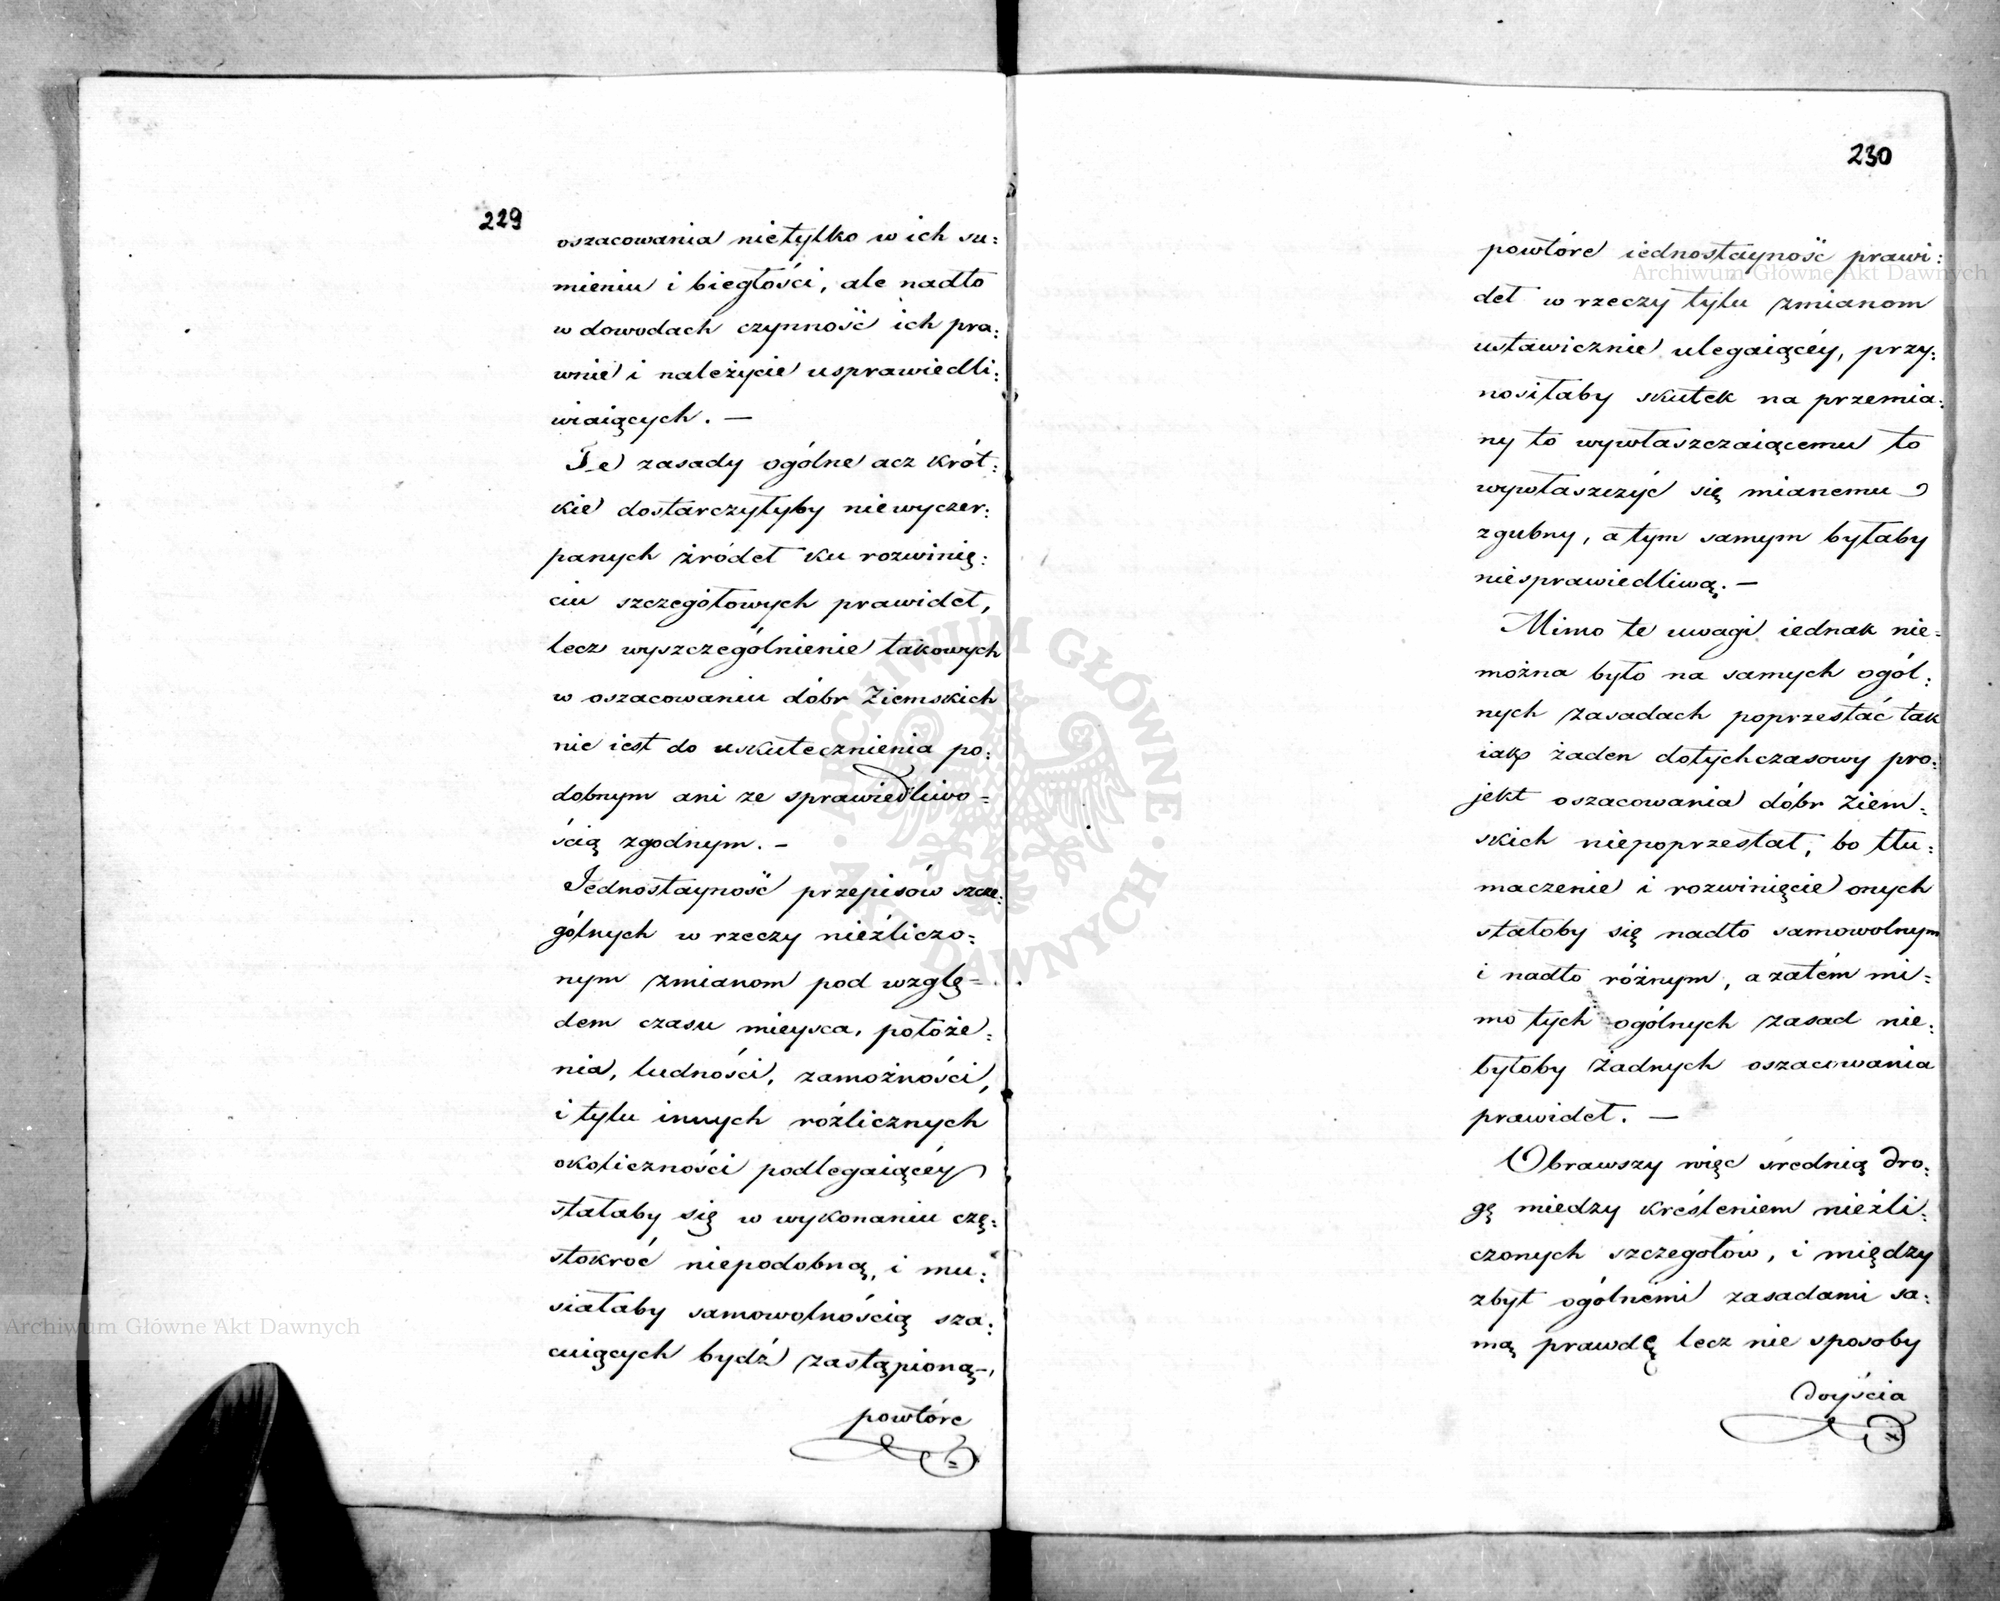 229
oszacowania nietylko w ich su:
mieniu i biegłości, ale nadto
w dowodach czynność ich pra:
wnie i należycie usprawiedli:
wiaiących. —
Te zasady ogólne acz krót:
kie dostarczyłyby niewyczer:
panych źródeł ku rozwinię:
ciu szczegółowych prawideł,
lecz wyszczególnienie takowych
w oszacowaniu dóbr Ziemskich
nie iest do uskutecznienia po:
dobnym ani ze sprawiedliwo=
ścią zgodnym. —
Jednostayność przepisów szcze:
gólnych w rzeczy niezliczo:
nym zmianom pod wzglę=
dem czasu mieysca, położe:
nia, ludności, zamożności,
i tylu innych roźlicznych
okoliczności podlegaiącéy
stałaby się w wykonaniu czę:
stokroć niepodobną, i mu:
siałaby samowolnością sza:
cuiących bydź zastąpioną,
powtóre
230
powtóre iednostayność prawi:
deł w rzeczy tylu zmianom
ustawicznie ulegaiącéy, przy:
nosiłaby skutek na przemia:
ny to wywłaszczaiącemu to
wywłaszczyć się mianemu
zgubny, a tym samym byłaby
niesprawiedliwą. —
Mimo te uwagi iednak nie=
można było na samych ogól:
nych zasadach poprzestać tak
iak żaden dotychczasowy pro:
jekt oszacowania dóbr Ziem:
skich niepoprzestał, bo tłu:
maczenie i rozwinięcie onych
stałoby się nadto samowolnym
i nadto różnym, a zatém mi=
mo tych ogólnych zasad nie:
byłoby żadnych oszacowania
prawideł. —
Obrawszy więc średnią dro:
gę miedzy kreśleniem niezli:
czonych szczegołów, i między
zbyt ogólnemi zasadami sa:
mą prawdę lecz nie sposoby
doyścia
Archiwum Główne Akt Dawnych
Archiwum Główne Akt Dawnych
ARCHIWUM GŁÓWNE AKT DAWNYCH